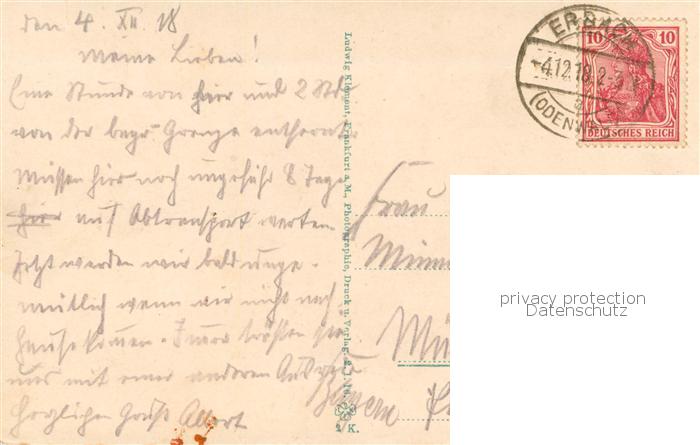 den 4. XII. 18
Meine Lieben!
Eine Stunde von hier und 2 Std.
von der bayr. Grenze entfernt
müssen hier noch ungefähr 8 Tage
hier auf Abtransport warten
Jetzt werden wir bald unge-
mütlich wenn wir nicht nach
Hause kommen. Immer trösten sie
uns mit einer anderen
Herzlichen Gruß Albert
Ludwig Klement, Frankfurt a. M., Photographie, Druck u. Verlag.
2 K.
ERBACH
4.12.18. 2-3
(ODENWALD)
10 10
DEUTSCHES REICH
Frau
Bayern
privacy protection
Datenschutz